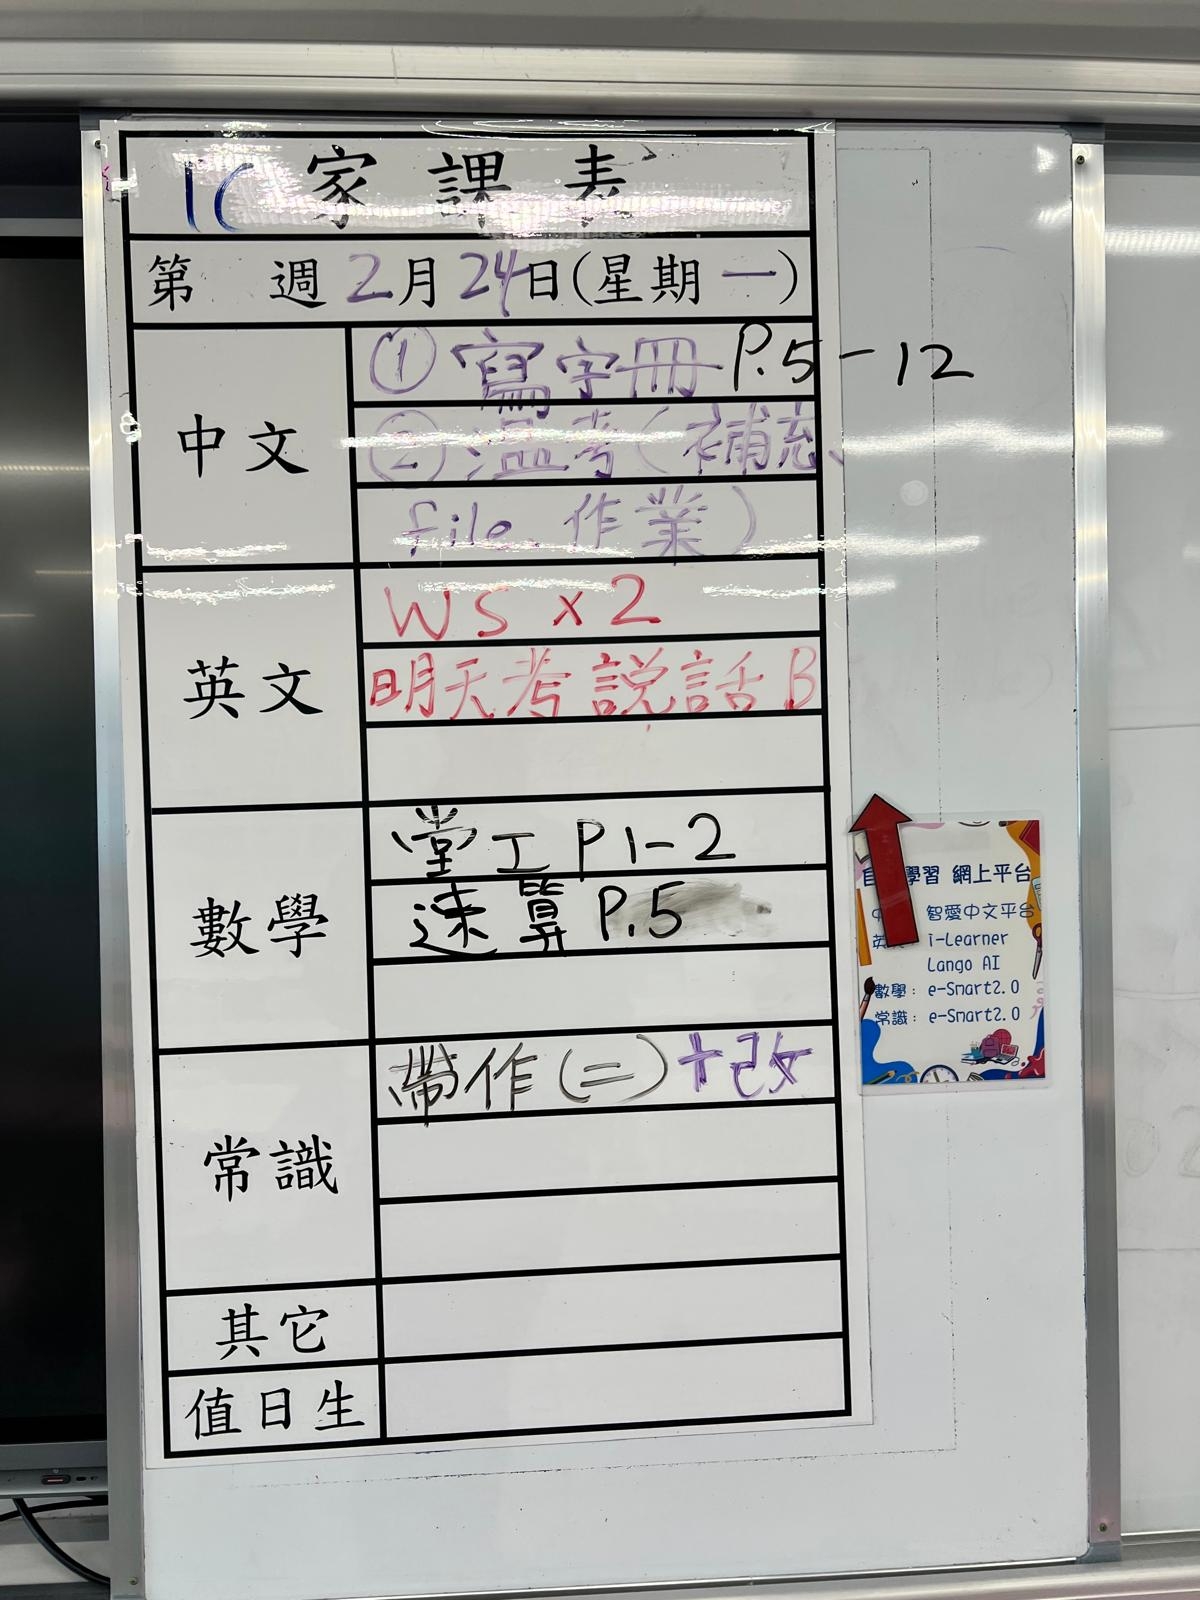 1C 家課表
第 週 2月24日(星期一)
中文
① 寫字冊 P.5-12
② 溫考(補充、
file、作業)
英文
WS x 2
明天考説話B
數學
堂工 P1-2
速算 P.5
常識
帶作(二)+改
其它
值日生
學習 網上平台
智愛中文平台
英 i-Learner
Lango AI
數學: e-Smart2.0
常識: e-Smart2.0